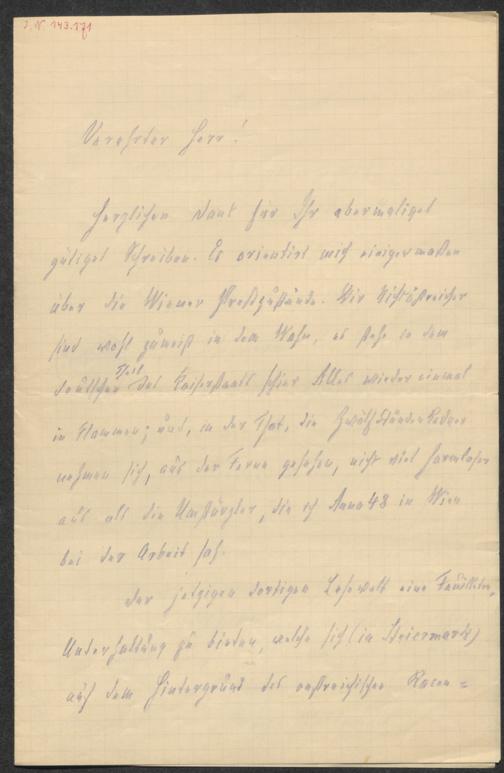 J. N. 143.171
Verehrter Herr!
Herzlichen Dank für Ihr abermaliges
gütiges Schreiben. Es orientirt mich einigermaßen
über die Wiener Preßzustände. Wir Nichtöstreicher
sind wohl zumeist in dem Wahn, es stehe in dem
Theil
deutschen des Kaiserstaats schier Alles wieder einmal
in Flammen; und, in der That, die Zwölfstundenredner
nehmen sich, aus der Ferne gesehen, nicht viel harmloser
aus als die Umstürzler, die ich Anno 48 in Wien
bei der Arbeit sah.
Der jetzigen dortigen Lesewelt eine Feuilleton-
Unterhaltung zu bieten, welche sich (in Steiermark)
auf dem Hintergrund des oestreichischen Racen=